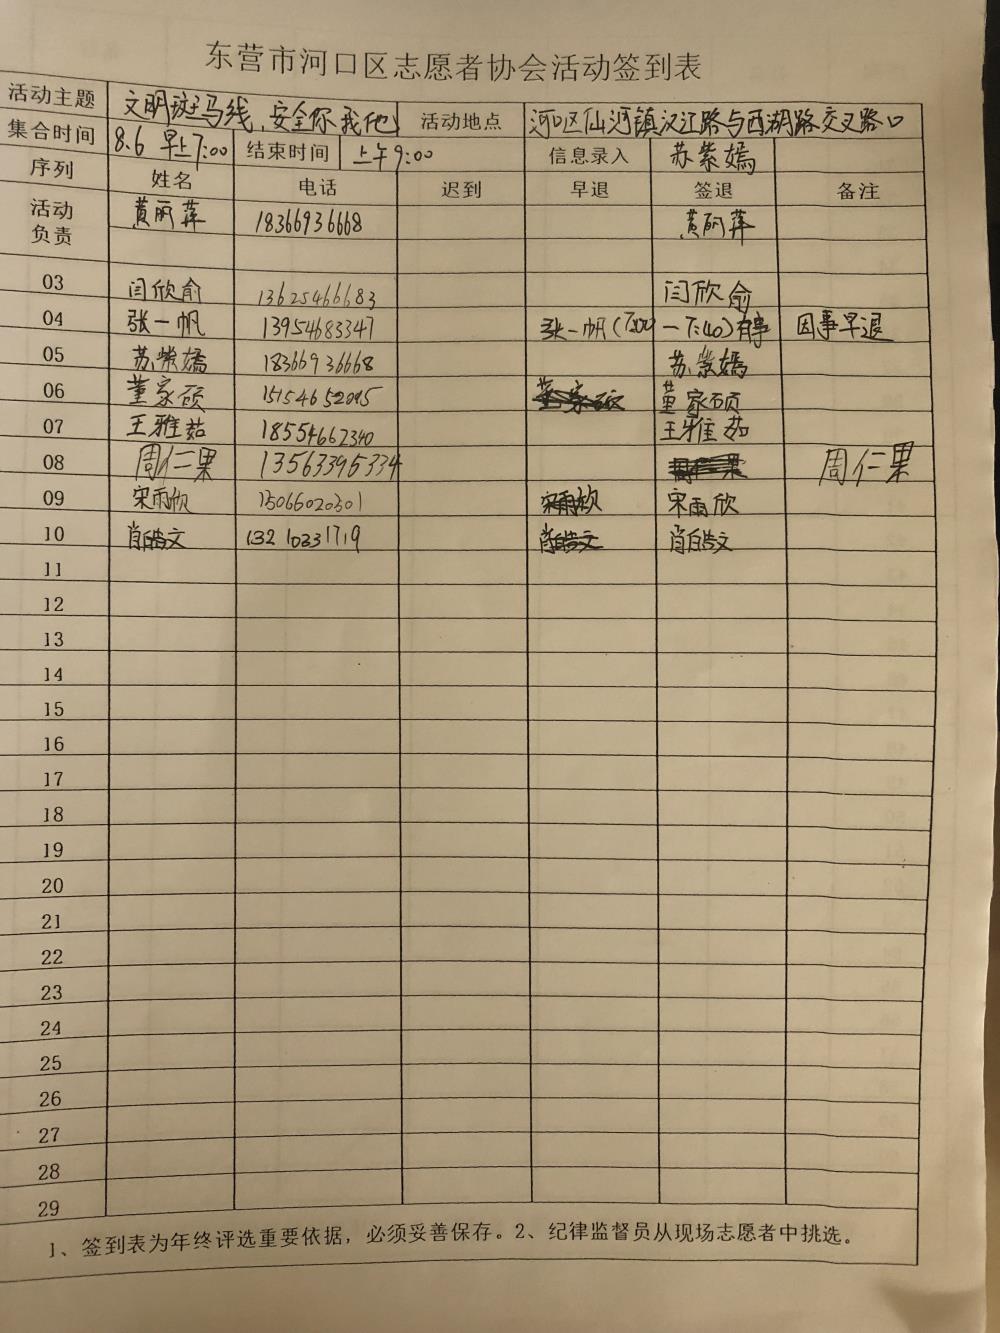 东营市河口区志愿者协会活动签到表
活动主题 文明斑马线,安全你我他 活动地点 河口区仙河镇汉江路与西湖路交叉路口
集合时间 8.6 早上7:00 结束时间 上午9:00 信息录入 苏紫嫣
序列 姓名 电话 迟到 早退 签退 备注
活动负责 黄丽萍 18366936668 黄丽萍
03 闫欣俞 13625466683 闫欣俞
04 张一帆 13954683347 张一帆(7:00—7:40)有事 因事早退
05 苏紫嫣 18366936668 苏紫嫣
06 董家硕 15154652095 董家硕 董家硕
07 王雅茹 18554662340 王雅茹
08 周仁果 13563395334 周仁果 周仁果
09 宋雨欣 15066020301 宋雨欣 宋雨欣
10 肖皓文 13210331719 肖皓文 肖皓文
11
12
13
14
15
16
17
18
19
20
21
22
23
24
25
26
27
28
29
1、签到表为年终评选重要依据，必须妥善保存。2、纪律监督员从现场志愿者中挑选。